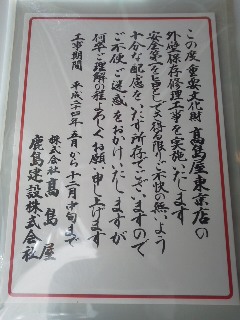 この度 重要文化財 髙島屋東京店の
外壁保存修理工事を実施いたします
安全第一を旨として又お客様に不快の無いよう
十分な配慮をいたす所存でございますので
ご不便ご迷惑をおかけいたしますが
何卒ご理解の程よろしくお願い申し上げます
工事期間 平成二十四年五月から十二月中旬まで
株式会社 髙島屋
鹿島建設株式会社